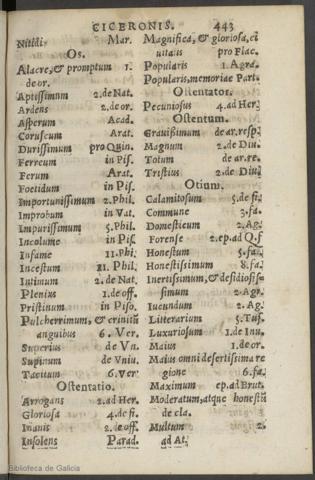 CICERONIS. 443
Nitidi. Mar.
Os.
Alacre, & promptum 1.
de or.
Aptissimum 2. de Nat.
Ardens 2. de or.
Asperum Acad.
Coruscum Arat.
Durissimum pro Quin.
Ferreum in Pis.
Ferum Arat.
Foetidum in Pis.
Importunissimum 2. Phil.
Improbum in Vat.
Impurissimum 5. Phil.
Incolume in Pis.
Infame 11. Phi.
Incestum 11. Phil.
Intimum 2. de Nat.
Plenius 1. de off.
Pristinum in Piso.
Pulcherrimum, & crinitũ
anguibus 6. Ver.
de Vn.
Supinum de Vniu.
Tacitum 6. Ver
Ostentatio.
Arrogans 2. ad Her.
Gloriosa 4. de fi.
Inanis 2. de off.
Insolens Parad.
Magnifica, & gloriosa, ci
uitatis pro Flac.
Popularis 1. Agra.
Popularis, memoriae Pari.
Ostentator.
Pecuniosus 4. ad Her.
Ostentum.
Gravissimum de ar. resp.
Magnum 2. de Diu.
Totum de ar. re.
Tristius 2. de Diu.
Otium.
Calamitosum 5. de fi.
Commune 3. fa.
Domesticum 2. Ag.
Forense 2. ep. ad Q. f
Honestum 5. fa.
Honestissimum 8. fa.
Inertissimum, & desidiosis-
simum 2. Agr.
Iucundum 2. Ag.
Literarium 5. Tus.
Luxuriosum 1. de Inu.
Maius 1. de or.
Maius omni desertissima re
gione 6. fa.
Maximum ep. ad Brut.
Moderatum, atque honestũ
de cla.
Multum 2.
ad At.
Biblioteca de Galicia